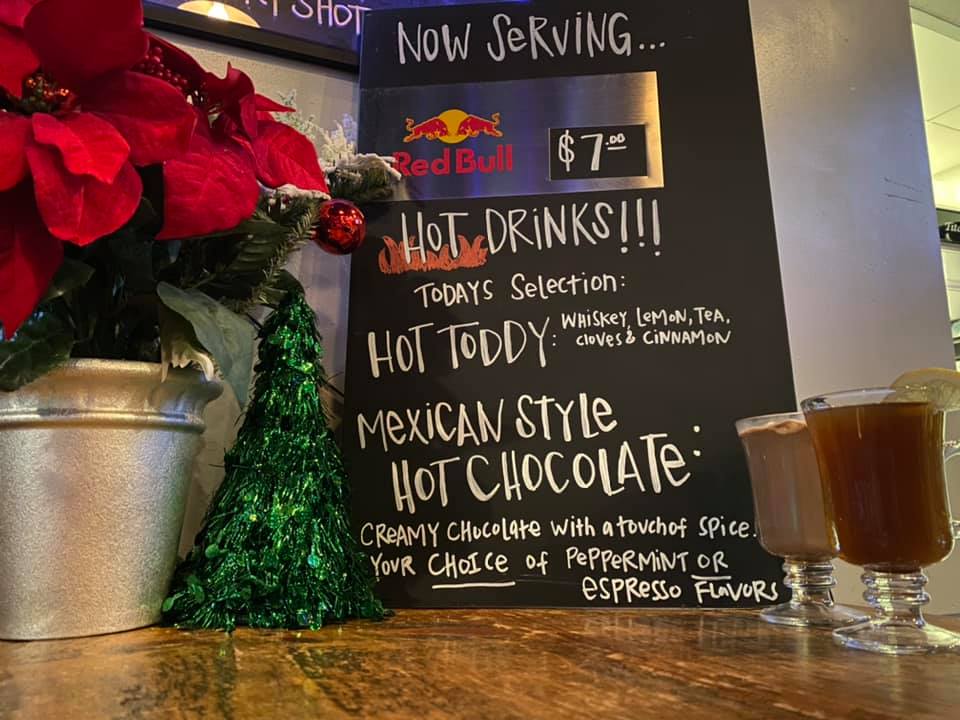 SHOT
NOW SERVING...
Red Bull
$7.00
HOT DRINKS!!!
TODAYS Selection:
HOT TODDY: WHISKEY, LEMON, TEA,
CLOVES & CINNAMON
MEXICAN STYLE
HOT CHOCOLATE:
CREAMY CHOCOLATE with a touch of spice.
YOUR CHOICE of PEPPERMINT OR
ESPRESSO FLAVORS